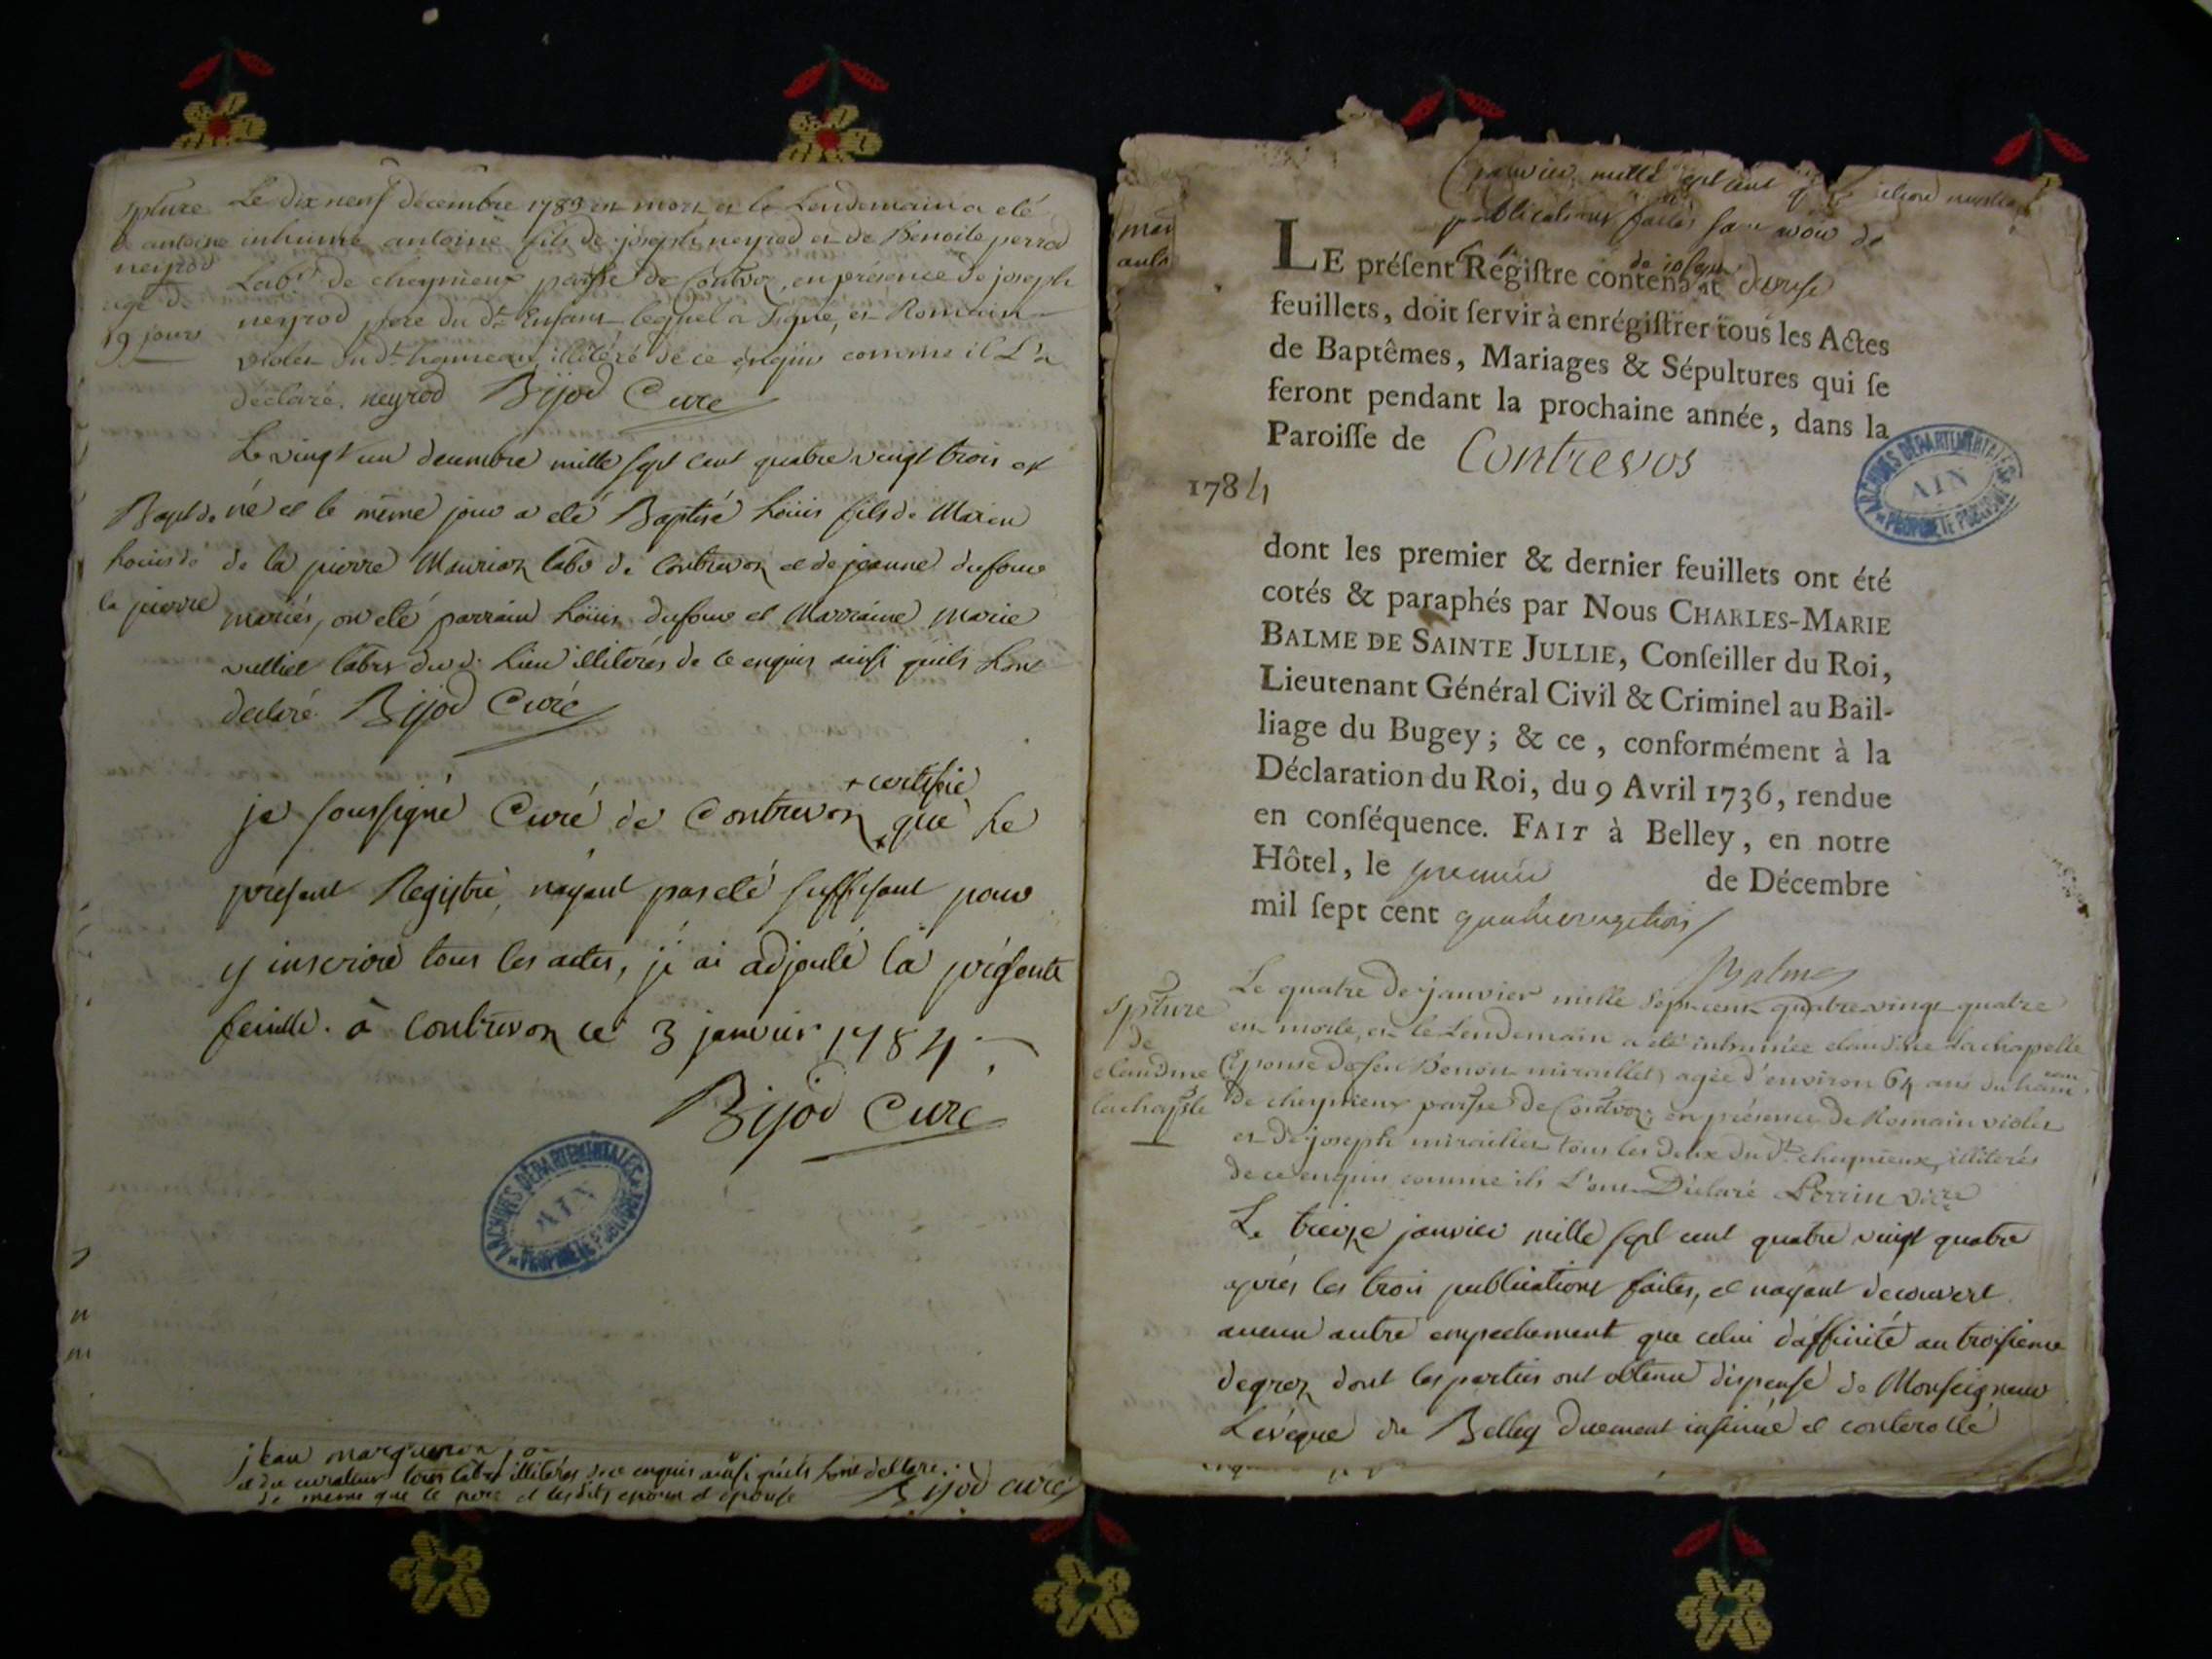 spture
de antoine
neyrod
agé de
19 jours
Le dix neuf decembre 1783 est mort et le Lendemain a eté
inhumé antoine fils de joseph neyrod et de Benoite perrod
Labr de cheynieux pariſſe de Contrvoz, en présence de joseph
neyrod pere du dt Enfant lequel a Signé, et Romain
violet du dt hameau, illitéré de ce enquis comme il L'a
déclaré. neyrod Bijod Curé
Bapt de
Louis de
la pierre
Le vingt un decembre mille sept cent quatre vingt trois est
né et le même jour a eté Baptisé Louis fils de
de la pierre labr de Contrevoz et de jeanne dufour
mariés, on eté parrain Louis dufour et Marraine Marie
vulliet labrs du d. Lieu illiterés de ce enquis ainsi quils Lont
declaré. Bijod Curé
+ certifié
je soussigné Curé de Contrevoz + que Le
présent Registre, nayant pas eté suffisant pour
y inscrire tous les actes, j'ai adjouté la présente
feuille. à Contrevoz ce 3 janvier 1784.
Bijod Curé
jean
et du curateur tous labrs illiterés de ce enquis ainsi quils Lont declaré.
de meme que le pere et lesdits epoux et epouse Bijod curé
janvier mille sept cent
publications faites sans
mar
LE préſent Régiſtre contenant douze
feuillets, doit ſervir à enrégiſtrer tous les Actes
de Baptêmes, Mariages & Sépultures qui ſe
feront pendant la prochaine année, dans la
Paroiſſe de Contrevos
1784
dont les premier & dernier feuillets ont été
cotés & paraphés par Nous CHARLES-MARIE
BALME DE SAINTE JULLIE, Conſeiller du Roi,
Lieutenant Général Civil & Criminel au Bail-
liage du Bugey ; & ce , conformément à la
Déclaration du Roi, du 9 Avril 1736, rendue
en conſéquence. FAIT à Belley, en notre
Hôtel, le premier de Décembre
mil ſept cent quatrevingttrois
Balme
spture
de
claudine
lachapelle
Le quatre de janvier mille sept cent quatre vingt quatre
est morte, et le Lendemain a eté inhumée claudine Lachapelle
(Epouse de feu Benoit miraillet) agée d'environ 64 ans du hameau
de cheynieux pariſſe de Contrvoz, en présence de Romain violet
et de joseph miraillet tous les deux du dt cheynieux, illiterés
de ce enquis comme ils L'ont Déclaré Perrin vicre
Le treize janvier mille sept cent quatre vingt quatre
après les trois publications faites, et nayant decouvert
aucun autre empechement que celui d'affinité au troisieme
degrez dont les parties ont obtenu dispense de Monseigneur
Levêque de Belley duement insinué et controllé
ARCHIVES DÉPARTEMENTALES
AIN
PROPRIÉTÉ PUBLIQUE
ARCHIVES DÉPARTEMENTALES
AIN
PROPRIÉTÉ PUBLIQUE